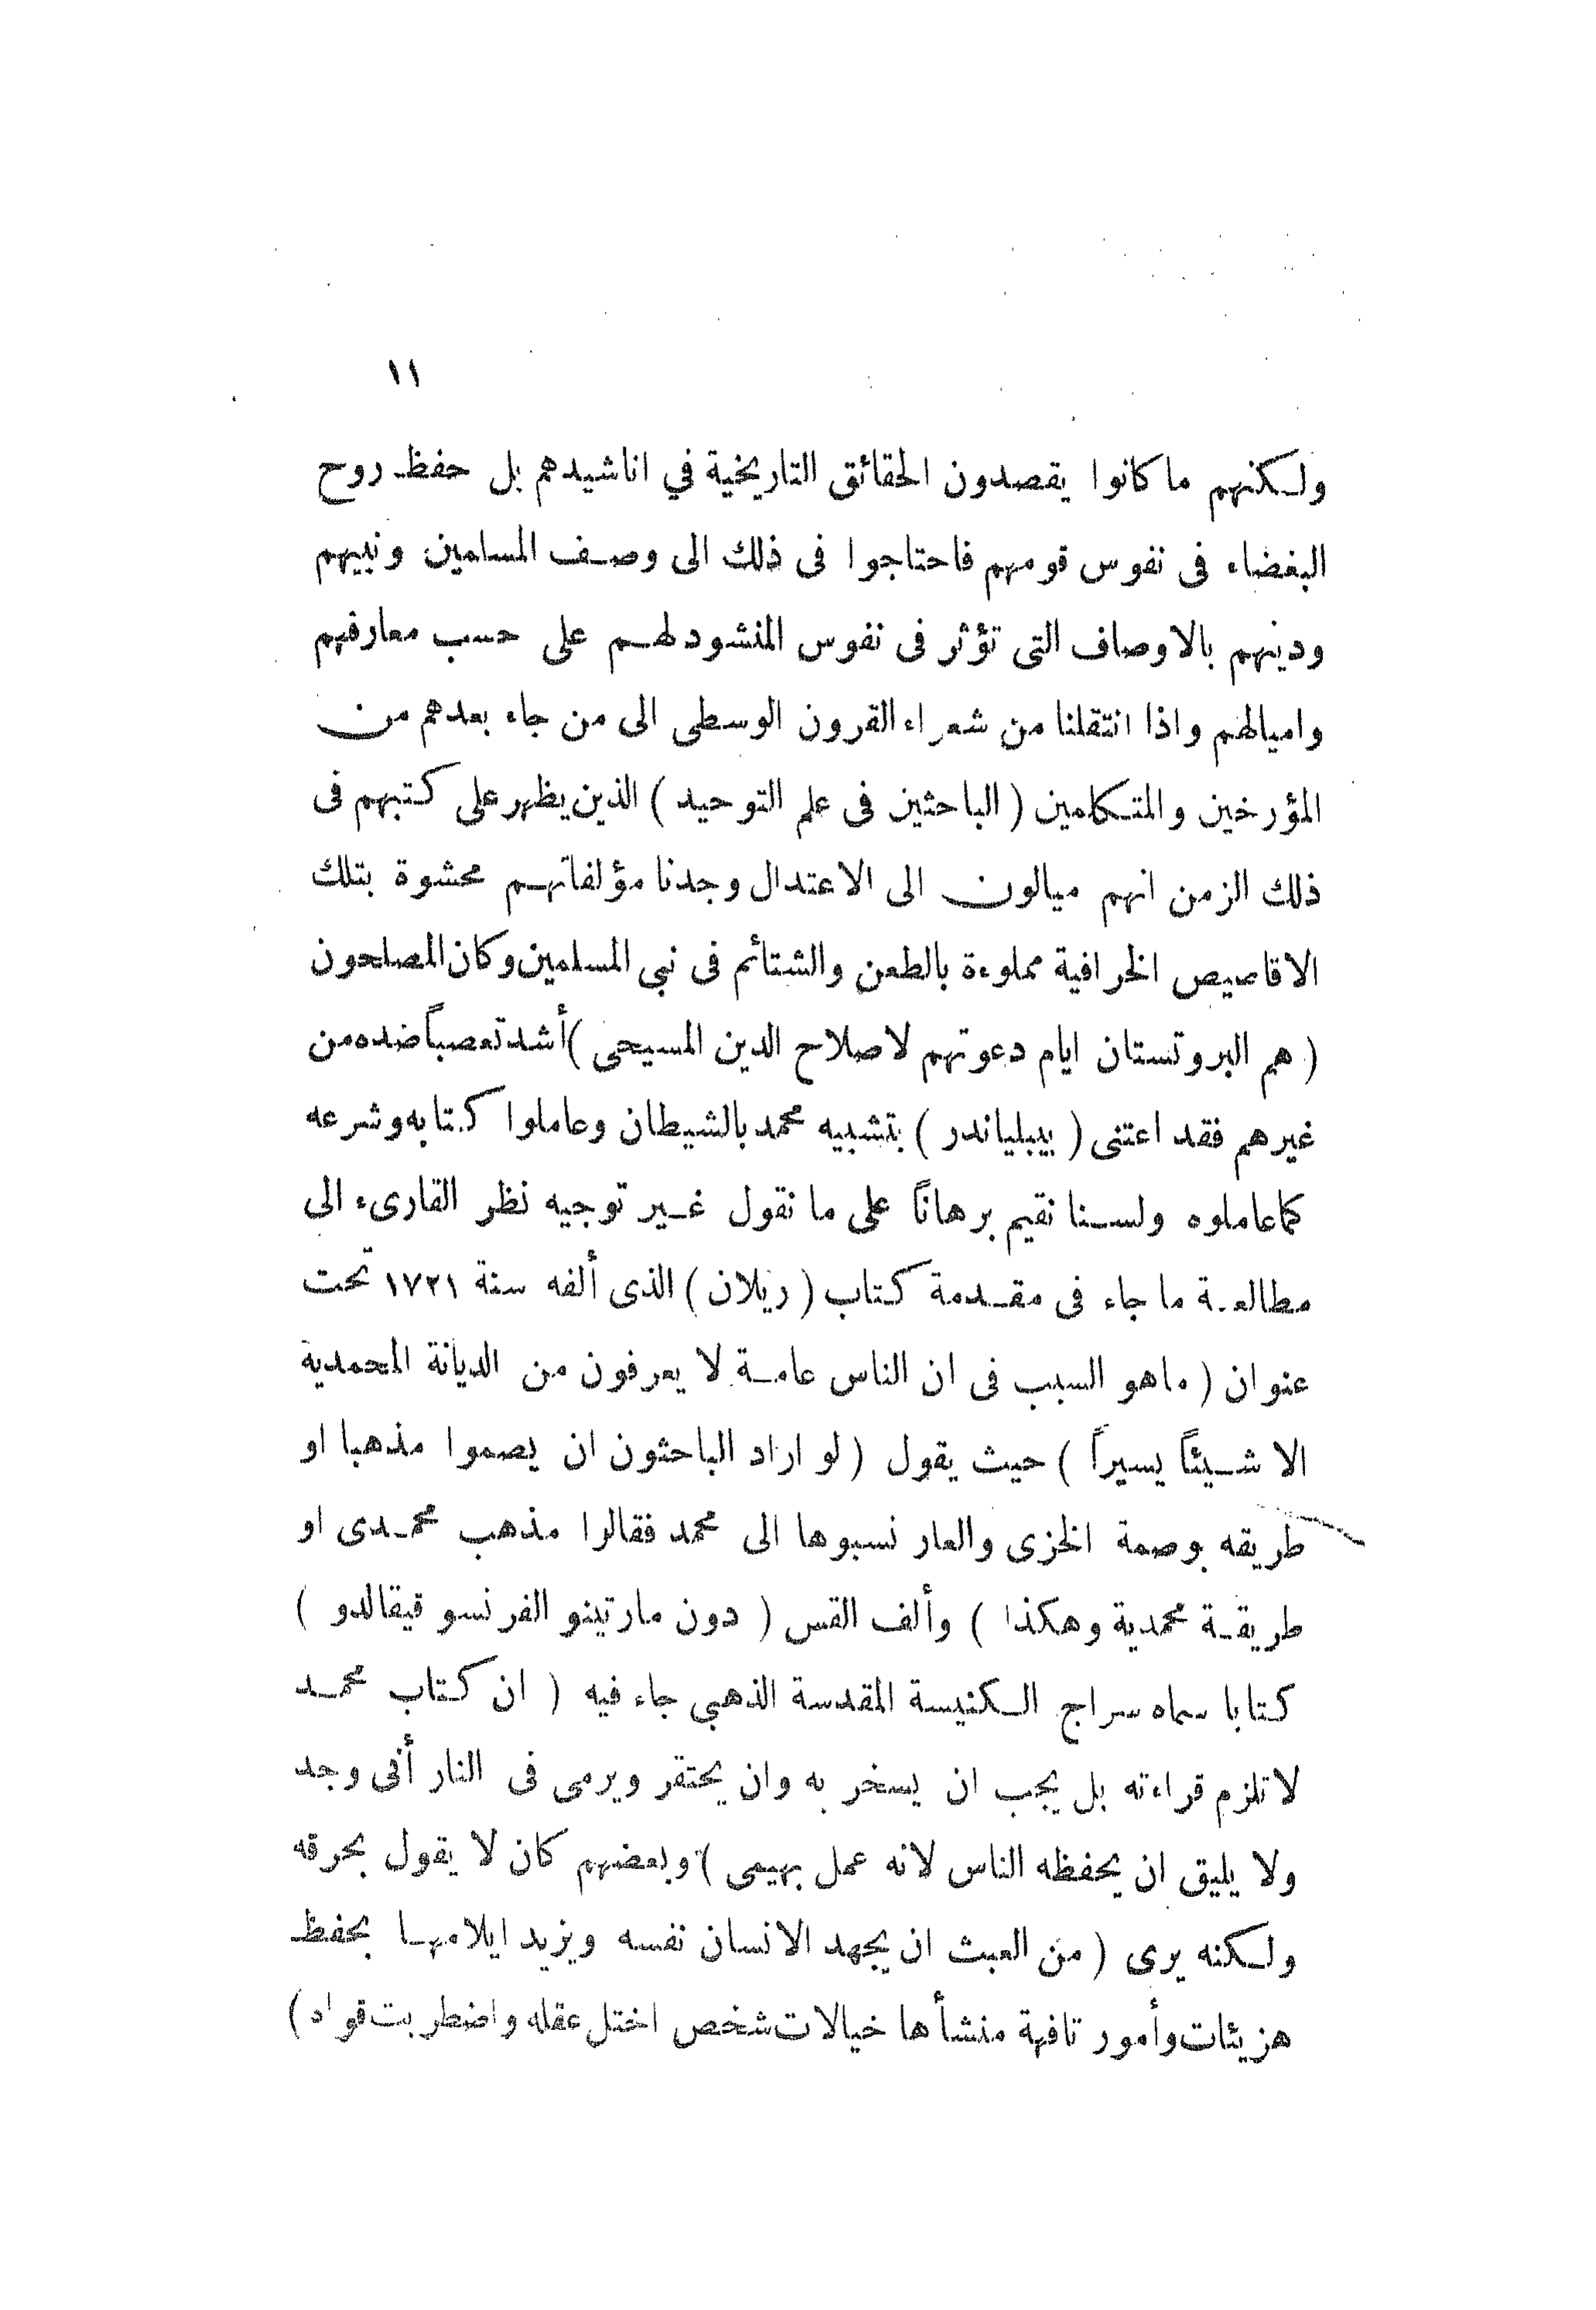 ١١
ولكنهم ما كانوا يقصدون الحقائق التاريخية في اناشيدهم بل حفظ روح
البغضاء فى نفوس قومهم فاحتاجوا فى ذلك الى وصف المسلمين ونبيهم
ودينهم بالاوصاف التى تؤثر فى نفوس المنشود لهم على حسب معارفهم
واميالهم واذا انتقلنا من شعراء القرون الوسطى الى من جاء بعدهم من
المؤرخين والمتكلمين ( الباحثين فى علم التوحيد ) الذين يظهر على كتبهم فى
ذلك الزمن انهم ميالون الى الاعتدال وجدنا مؤلفاتهم محشوة بتلك
الاقاصيص الخرافية مملوءة بالطعن والشتائم فى نبى المسلمين وكان المصلحون
( هم البروتستان ايام دعوتهم لاصلاح الدين المسيحى ) أشد تعصباً ضده من
غيرهم فقد اعتنى ( بيبلياندر ) بتشبيه محمد بالشيطان وعاملوا كتابه وشرعه
كما عاملوه ولسنا نقيم برهاناً على ما نقول غير توجيه نظر القارىء الى
مطالعة ما جاء فى مقدمة كتاب ( ريلان ) الذى ألفه سنة ١٧٢١ تحت
عنوان ( ماهو السبب فى ان الناس عامة لا يعرفون من الديانة المحمدية
الا شيئاً يسيراً ) حيث يقول ( لو اراد الباحثون ان يصموا مذهبا او
طريقه بوصمة الخزى والعار نسبوها الى محمد فقالوا مذهب محمدى او
طريقة محمدية وهكذا ) وألف القس ( دون مارتينو الفرنسو فيقالدو )
كتابا سماه سراج الكنيسة المقدسة الذهبى جاء فيه ( ان كتاب محمد
لا تلزم قراءته بل يجب ان يسخر به وان يحتقر ويرمى فى النار أنى وجد
ولا يليق ان يحفظه الناس لانه عمل بهيمى ) وبعضهم كان لا يقول بحرقه
ولكنه يرى ( من العبث ان يجهد الانسان نفسه ويزيد ايلامها بحفظ
هزيئات وأمور تافهة منشأها خيالات شخص اختل عقله واضطربت قواه )